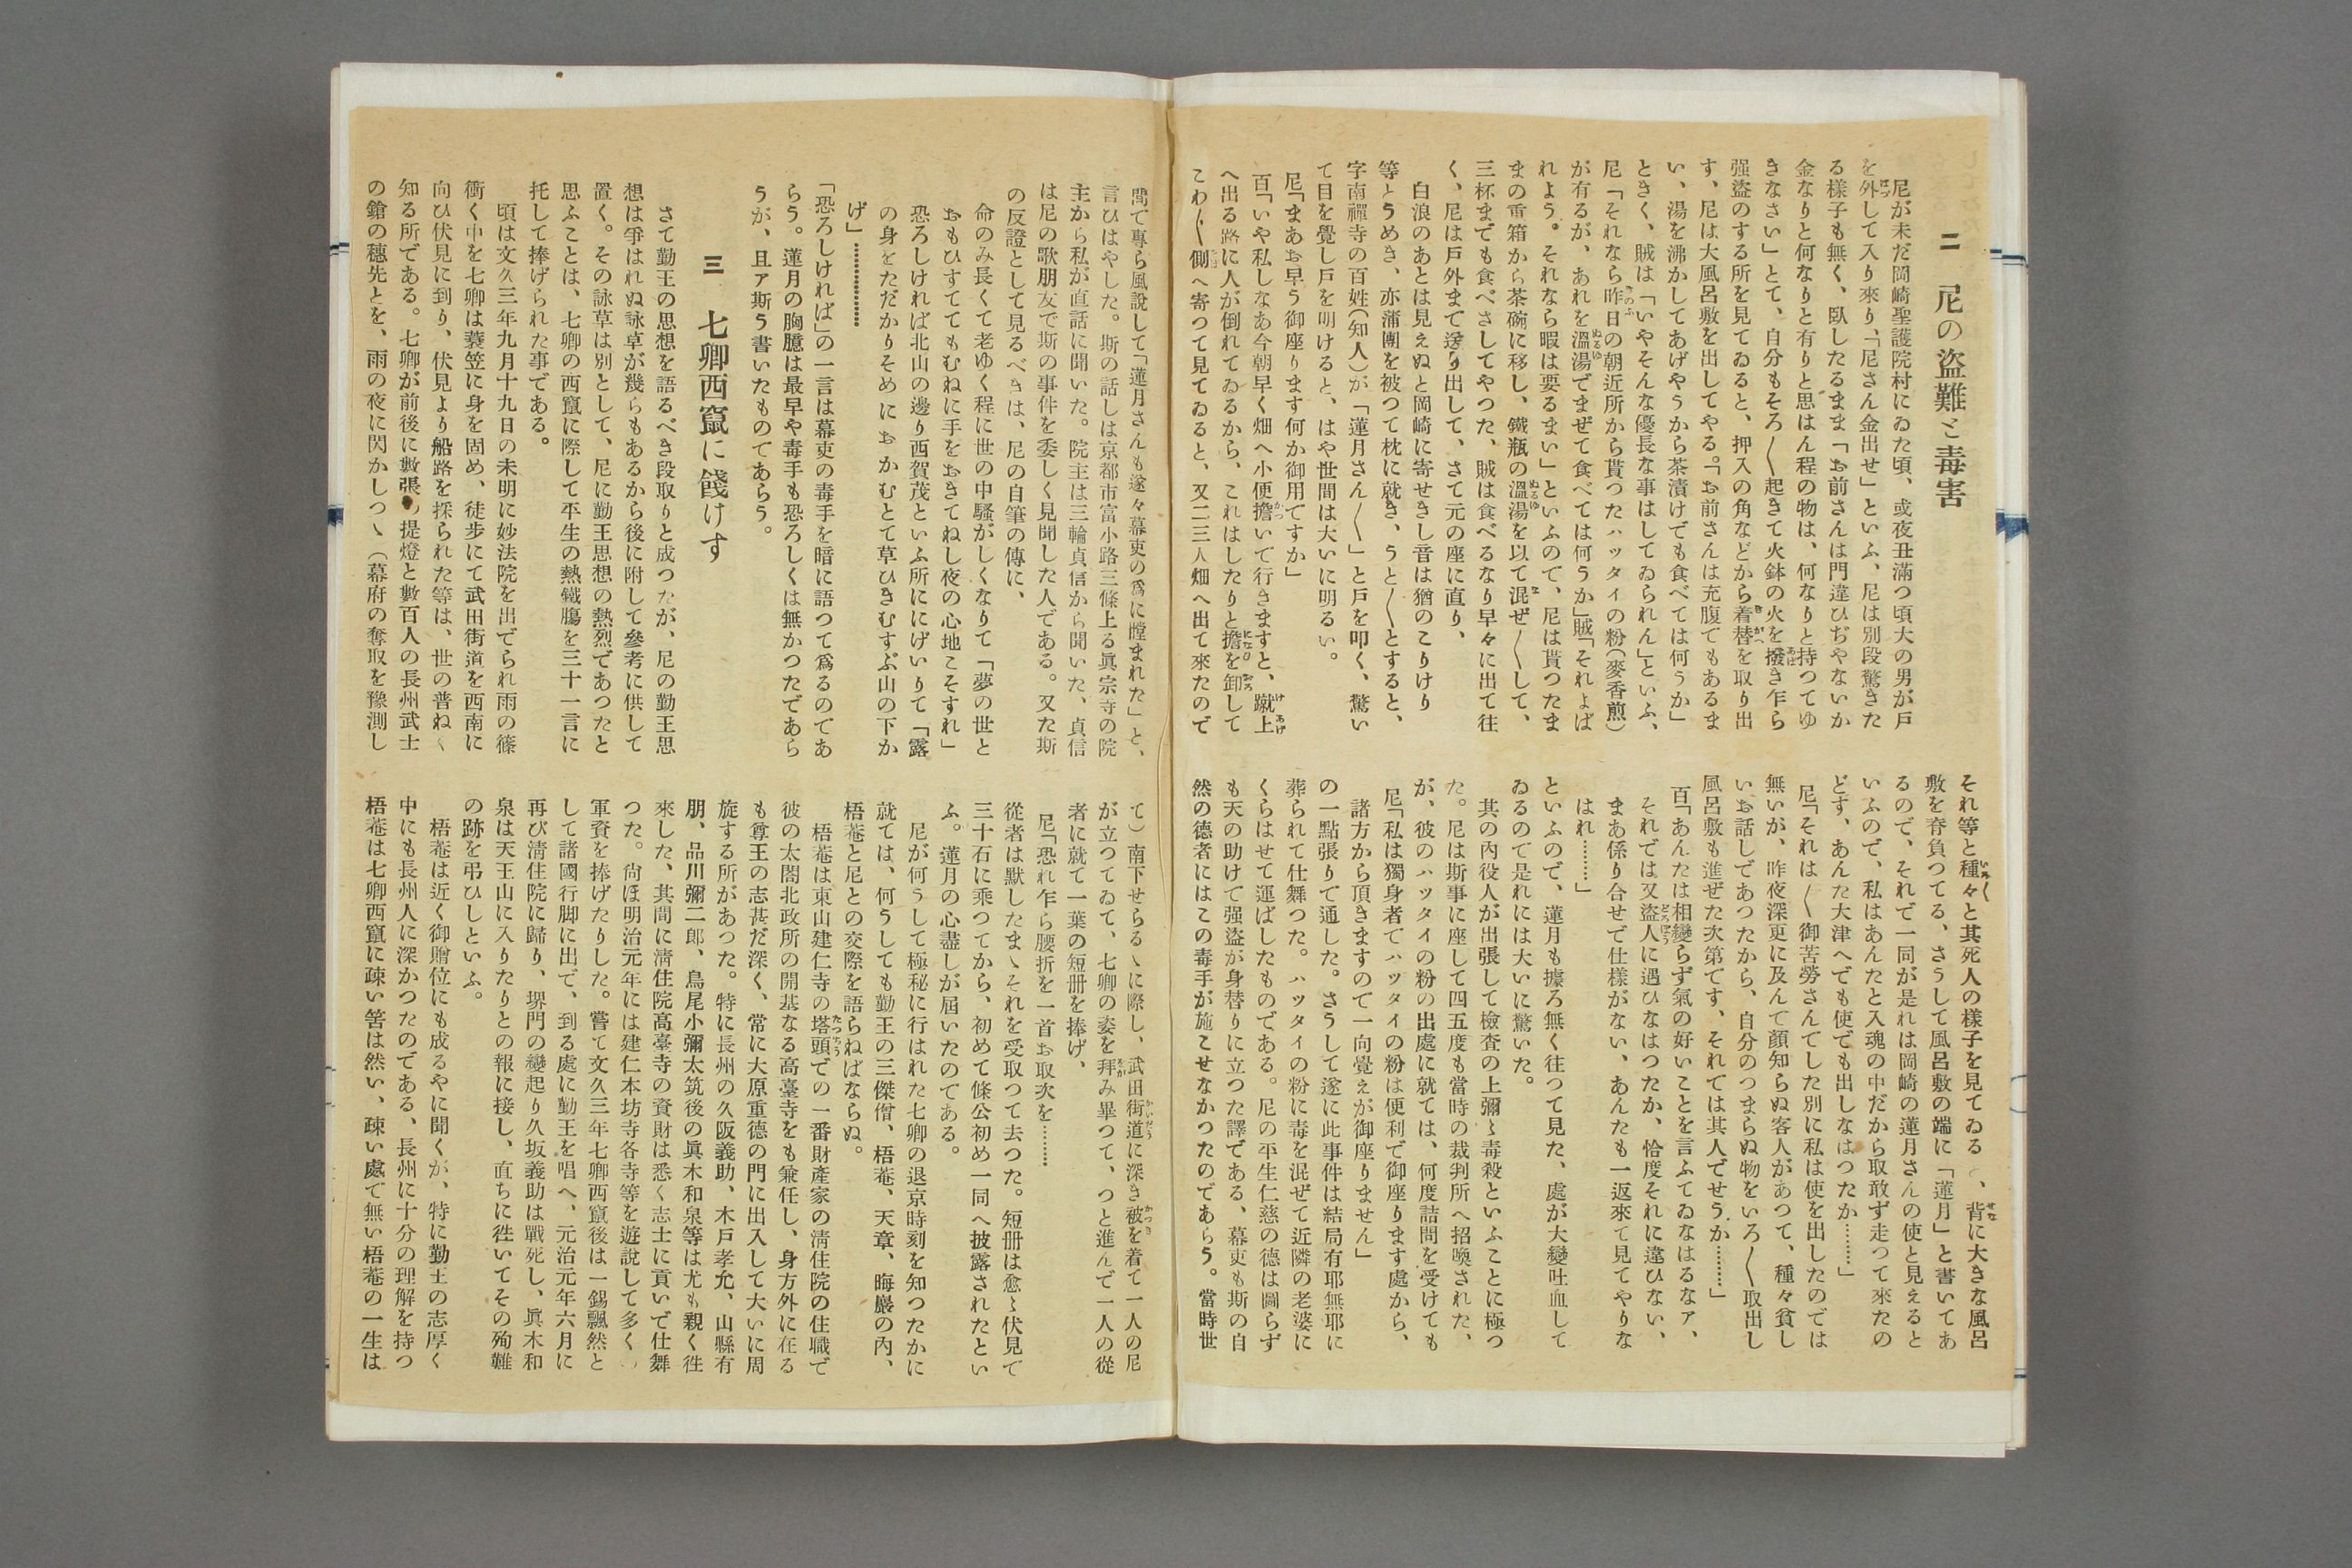 二　尼の盜難と毒害
尼が未だ岡崎聖護院村にゐた頃、或夜丑滿つ頃大の男が戸
を外して入り來り、「尼さん金出せ」といふ、尼は別段驚きた
る樣子も無く、臥したるまま「お前さんは門違ひぢやないか
金なりと何なりと有りと思はん程の物は、何なりと持つてゆ
きなさい」とて、自分もそろ〳〵起きて火鉢の火を撥き乍ら
强盜のする所を見てゐると、押入の角などから着替を取り出
す、尼は大風呂敷を出してやる。「お前さんは充腹でもあるま
い、湯を沸かしてあげやうから茶漬けでも食べては何うか」
ときく、賊は「いやそんな優長な事はしてゐられん」といふ、
尼「それなら昨日の朝近所から貰つたハッタイの粉（麥香煎）
が有るが、あれを溫湯でまぜて食べては何うか」賊「それよば
れよう。それなら暇は要るまい」といふので、尼は貰つたま
まの重箱から茶碗に移し、鐵瓶の溫湯を以て混ぜ〳〵して、
三杯までも食べさしてやつた、賊は食べるなり早々に出て往
く、尼は戸外まで送り出して、さて元の座に直り、
白浪のあとは見えぬと岡崎に寄せきし音は猶のこりけり
等とうめき、亦蒲團を被つて枕に就き、うと〳〵とすると、
字南禪寺の百姓（知人）が「蓮月さん〳〵」と戸を叩く、驚い
て目を覺し戸を明けると、はや世間は大いに明るい。
尼「まあお早う御座ります何か御用ですか」
百「いや私しなあ今朝早く畑へ小便擔いで行きますと、蹴上
へ出る路に人が倒れてゐるから、これはしたりと擔を卸して
こわ〳〵側へ寄つて見てゐると、又二三人畑へ出て來たので
それ等と種々と其死人の樣子を見てゐる、背に大きな風呂
敷を脊負つてる、さうして風呂敷の端に「蓮月」と書いてあ
るので、それで一同が是れは岡崎の蓮月さんの使と見えると
いふので、私はあんたと入魂の中だから取敢ず走つて來たの
どす、あんた大津へでも使でも出しなはつたか………」
尼「それは〳〵御苦勞さんでした別に私は使を出したのでは
無いが、昨夜深更に及んで顏知らぬ客人があつて、種々貧し
いお話しであつたから、自分のつまらぬ物をいろ〳〵取出し
風呂敷も進ぜた次第です、それでは其人でせうか………」
百「あんたは相變らず氣の好いことを言ふてゐなはるなァ、
それでは又盜人に遇ひなはつたか、恰度それに違ひない、
まあ係り合せで仕樣がない、あんたも一返來て見てやりな
はれ………」
といふので、蓮月も據ろ無く往つて見た、處が大變吐血して
ゐるので是れには大いに驚いた。
其の內役人が出張して檢査の上彌〻毒殺といふことに極つ
た。尼は斯事に座して四五度も當時の裁判所へ招喚された、
が、彼のハッタイの粉の出處に就ては、何度詰問を受けても
尼「私は獨身者でハッタイの粉は便利で御座ります處から、
諸方から頂きますので一向覺えが御座りません」
の一點張りで通した。さうして遂に此事件は結局有耶無耶に
葬られて仕舞つた。ハッタイの粉に毒を混ぜて近隣の老婆に
くらはせて運ばしたものである。尼の平生仁慈の德は圖らず
も天の助けで强盜が身替りに立つた譯である、幕吏も斯の自
然の德者にはこの毒手が施こせなかつたのであらう。當時世
間で專ら風說して「蓮月さんも遂々幕吏の爲に瞠まれた」と、
言ひはやした。斯の話しは京都市富小路三條上る眞宗寺の院
主から私が直話に聞いた。院主は三輪貞信から聞いた、貞信
は尼の歌朋友で斯の事件を委しく見聞した人である。又た斯
の反證として見るべきは、尼の自筆の傳に、
命のみ長くて老ゆく程に世の中騷がしくなりて「夢の世と
おもひすててもむねに手をおきてねし夜の心地こそすれ」
恐ろしければ北山の邊り西賀茂といふ所ににげいりて「露
の身をただかりそめにおかむとて草ひきむすぶ山の下か
げ」……………
「恐ろしければ」の一言は幕吏の毒手を暗に語つて爲るのであ
らう。蓮月の胸臆は最早や毒手も恐ろしくは無かつたであら
うが、且ァ斯う書いたものであらう。
三　七卿西竄に餞けす
さて勤王の思想を語るべき段取りと成つたが、尼の勤王思
想は爭はれぬ詠草が幾らもあるから後に附して參考に供して
置く。その詠草は別として、尼に勤王思想の熱烈であつたと
思ふことは、七卿の西竄に際して平生の熱鐵膓を三十一言に
托して捧げられた事である。
頃は文久三年九月十九日の未明に妙法院を出でられ雨の篠
衝く中を七卿は蓑笠に身を固め、徒步にて武田街道を西南に
向ひ伏見に到り、伏見より船路を採られた等は、世の普ねく
知る所である。七卿が前後に數張の提燈と數百人の長州武士
の鎗の穗先とを、雨の夜に閃かしつゝ（幕府の奪取を豫測し
て）南下せらるゝに際し、武田街道に深き被を着て一人の尼
が立つてゐて、七卿の姿を拜み畢つて、つと進んで一人の從
者に就て一葉の短册を捧げ、
尼「恐れ乍ら腰折を一首お取次を………
從者は默したまゝそれを受取つて去つた。短册は愈〻伏見で
三十石に乘つてから、初めて條公初め一同へ披露されたとい
ふ。蓮月の心盡しが屆いたのである。
尼が何うして極秘に行はれた七卿の退京時刻を知つたかに
就ては、何うしても勤王の三傑僧、梧菴、天章、晦巖の內、
梧菴と尼との交際を語らねばならぬ。
梧菴は東山建仁寺の塔頭での一番財產家の淸住院の住職で
彼の太閤北政所の開基なる高臺寺をも兼任し、身方外に在る
も尊王の志甚だ深く、常に大原重德の門に出入して大いに周
旋する所があつた。特に長州の久阪義助、木戸孝允、山縣有
朋、品川彌二郎、鳥尾小彌太筑後の眞木和泉等は尤も親く徃
來した、其間に淸住院高臺寺の資財は悉く志士に貢いで仕舞
つた。尙ほ明治元年には建仁本坊寺各寺等を遊說して多くの
軍資を捧げたりした。嘗て文久三年七卿西竄後は一錫飄然と
して諸國行脚に出で、到る處に勤王を唱へ、元治元年六月に
再び淸住院に歸り、堺門の變起り久坂義助は戰死し、眞木和
泉は天王山に入りたりとの報に接し、直ちに徃いてその殉難
の跡を弔ひしといふ。
梧菴は近く御贈位にも成るやに聞くが、特に勤王の志厚く
中にも長州人に深かつたのである、長州に十分の理解を持つ
梧菴は七卿西竄に疎い筈は然い、疎い處で無い梧菴の一生は